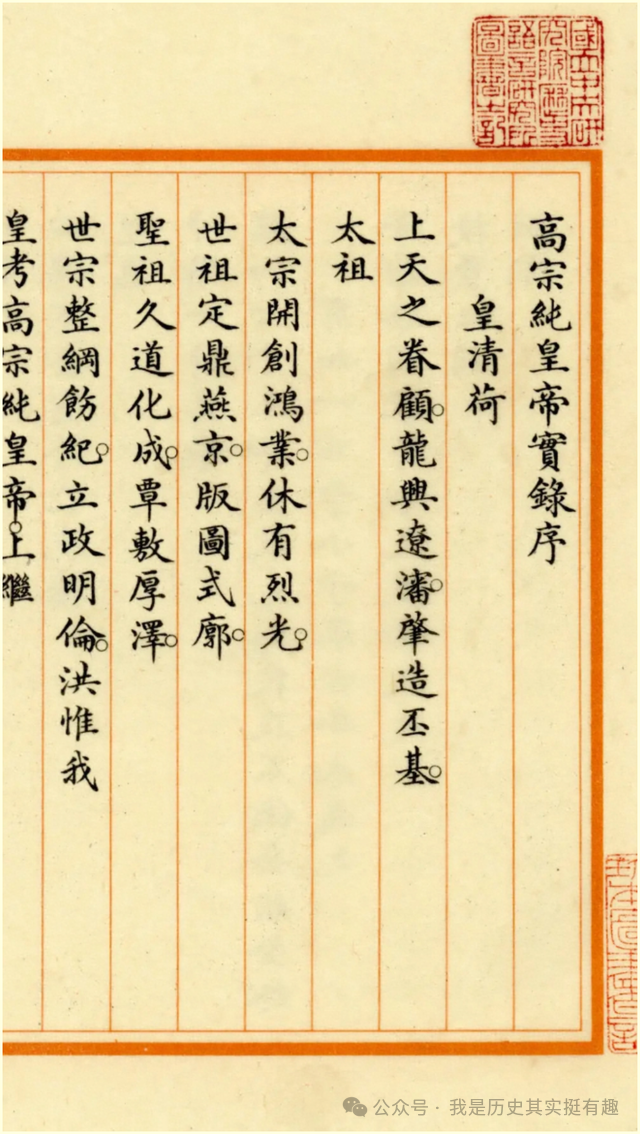 高宗純皇帝實錄序
皇清荷
上天之眷顧。龍興遼瀋。肇造丕基。
太祖
太宗開創鴻業。休有烈光。
世祖定鼎燕京。版圖式廓。
聖祖久道化成。覃敷厚澤。
世宗整綱飭紀。立政明倫。洪惟我
皇考高宗純皇帝。上繼
國立中央研
究院歷史
語言研究所
圖書之記
公众号 · 我是历史其实挺有趣